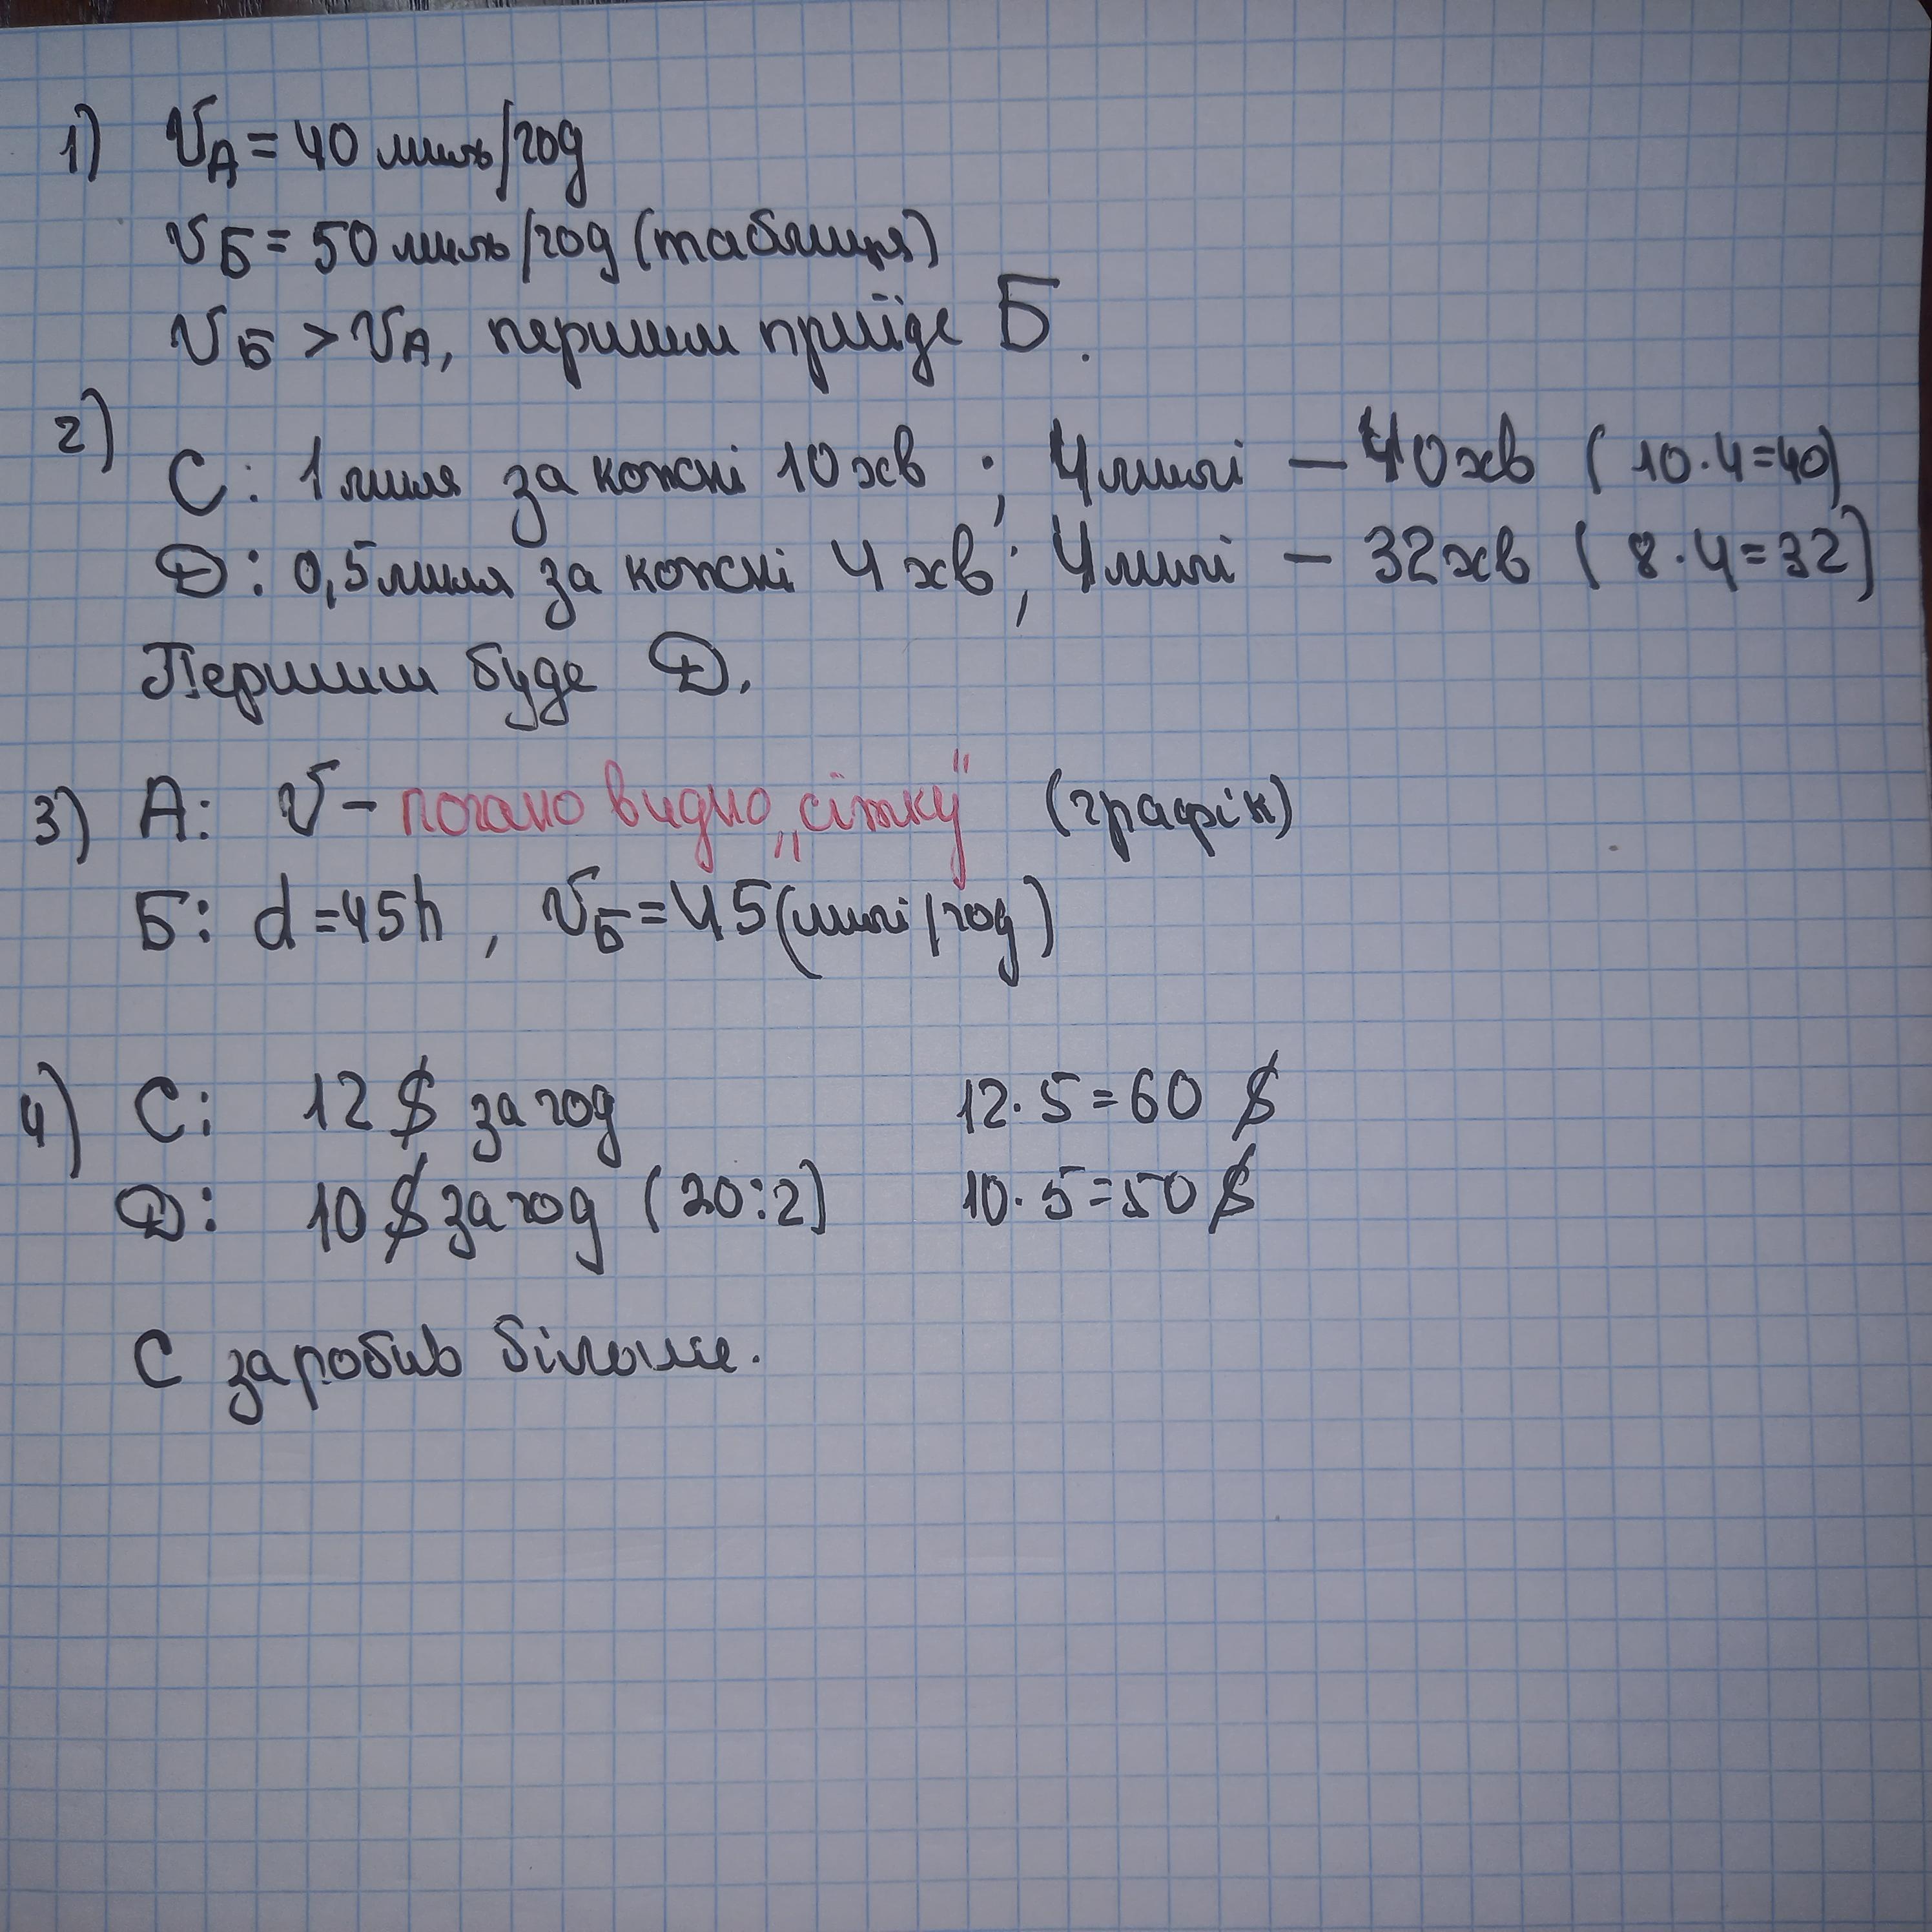 1) VА = 40 миль/год
VБ = 50 миль/год (таблиця)
VБ > VА, першим приїде Б.
2)
С: 1 миля за кожні 10 хв ; 4 милі – 40 хв ( 10·4=40)
D: 0,5 миля за кожні 4 хв ; 4 милі – 32 хв ( 8·4=32)
Першим буде D.
3) А: V – погано видно „сітку" (графік)
Б: d = 45h , VБ = 45 (милі/год)
4) С: 12 $ за год 12·5=60 $
D: 10 $ за год (20:2) 10·5=50 $
С заробив більше.